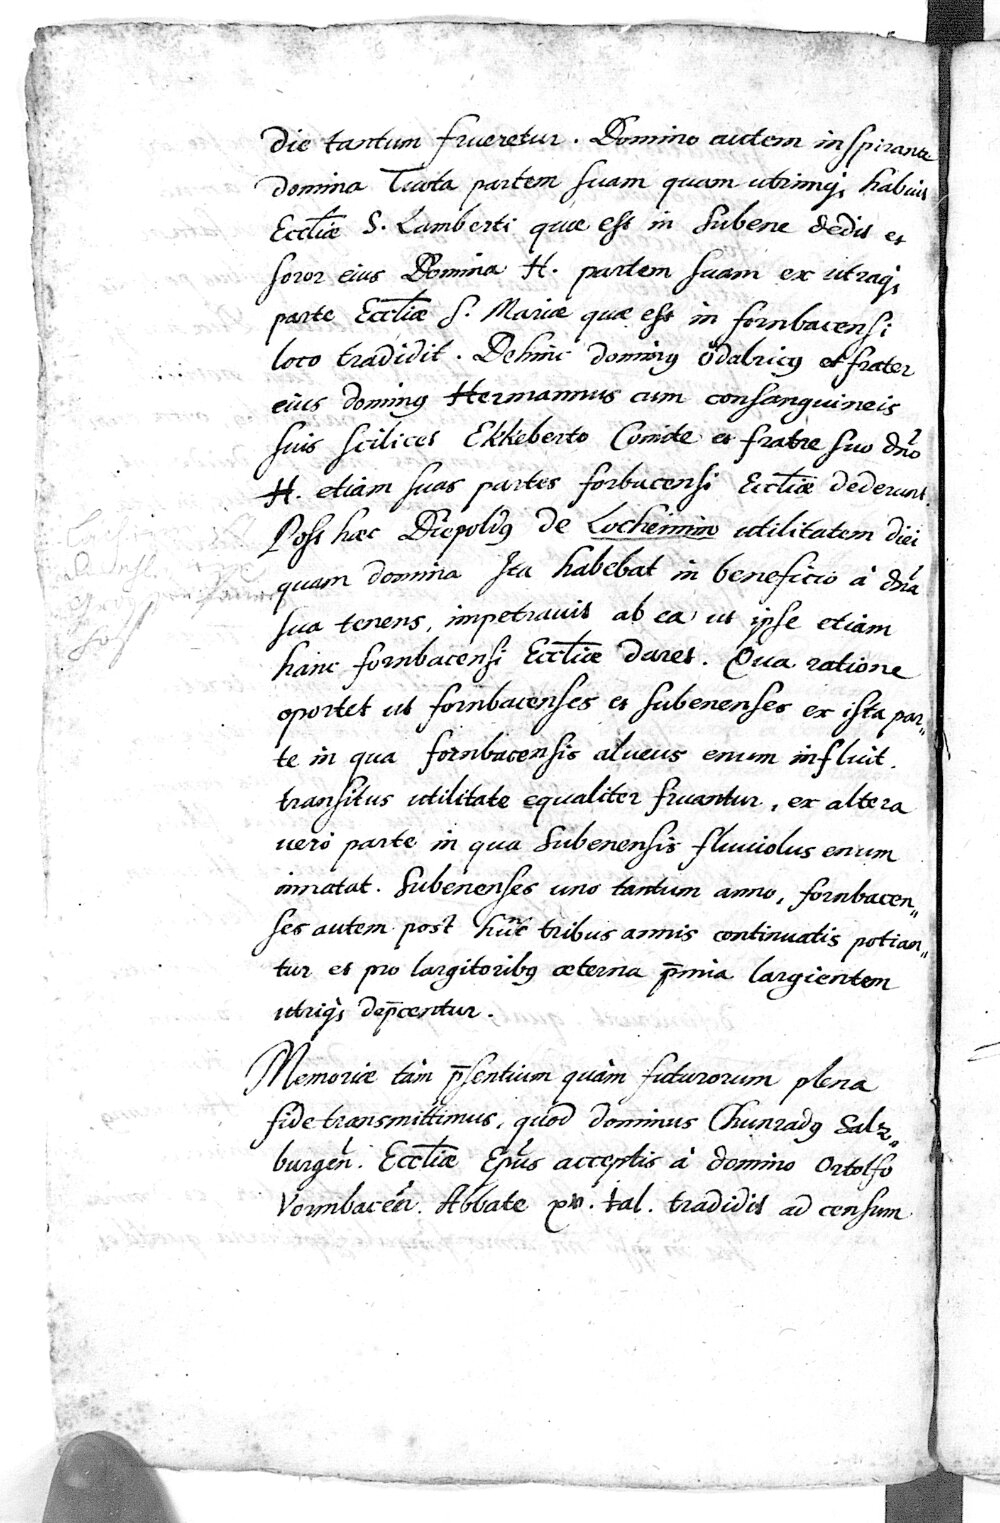 die tantum frueretur. Domino autem inspirante
domina Tuota partem suam quam utrimq; habuit
Eccl̄iæ S. Lamberti quæ est in Subene dedit et
soror eius Domina H. partem suam ex utraq;
parte Eccl̄iæ S. Mariæ quæ est in fornbacensi
loco tradidit. Dehinc dominꝰ Ŏdalricꝰ et frater
eius dominꝰ Hermannus cum consanguineis
suis scilicet Ekkeberto Comite et fratre suo dn̄o
H. etiam suas partes forbacensi Eccl̄iæ dederunt.
Post hæc Diepoldꝰ de Locheimin utilitatem diei
quam domina Ita habebat in beneficio à dn̄a
sua tenens, impetravit ab ea ut ipse etiam
hanc fornbacensi Eccl̄iæ daret. Qua ratione
oportet ut fornbacenses et Subenenses ex ista par„
te in qua fornbacensis alveus enum influit.
transitus utilitate equaliter fruantur, ex altera
vero parte in qua Subenensis fluviolus enum
innatat. Subenenses uno tantum anno, fornbacen„
ses autem post hunc tribus annis continuatis potian„
tur et pro largitoribꝰ æterna p̄mia largientem
utriq; dep̄centur.
Memoriæ tàm p̄sentium quàm futurorum plena
fide transmittimus, quod dominus Chunradꝰ Salz„
burgen̄. Eccl̄iæ Ep̄us acceptis à domino Ortolfo
Vornbacen̄. Abbate xv. tal. tradidit ad censum